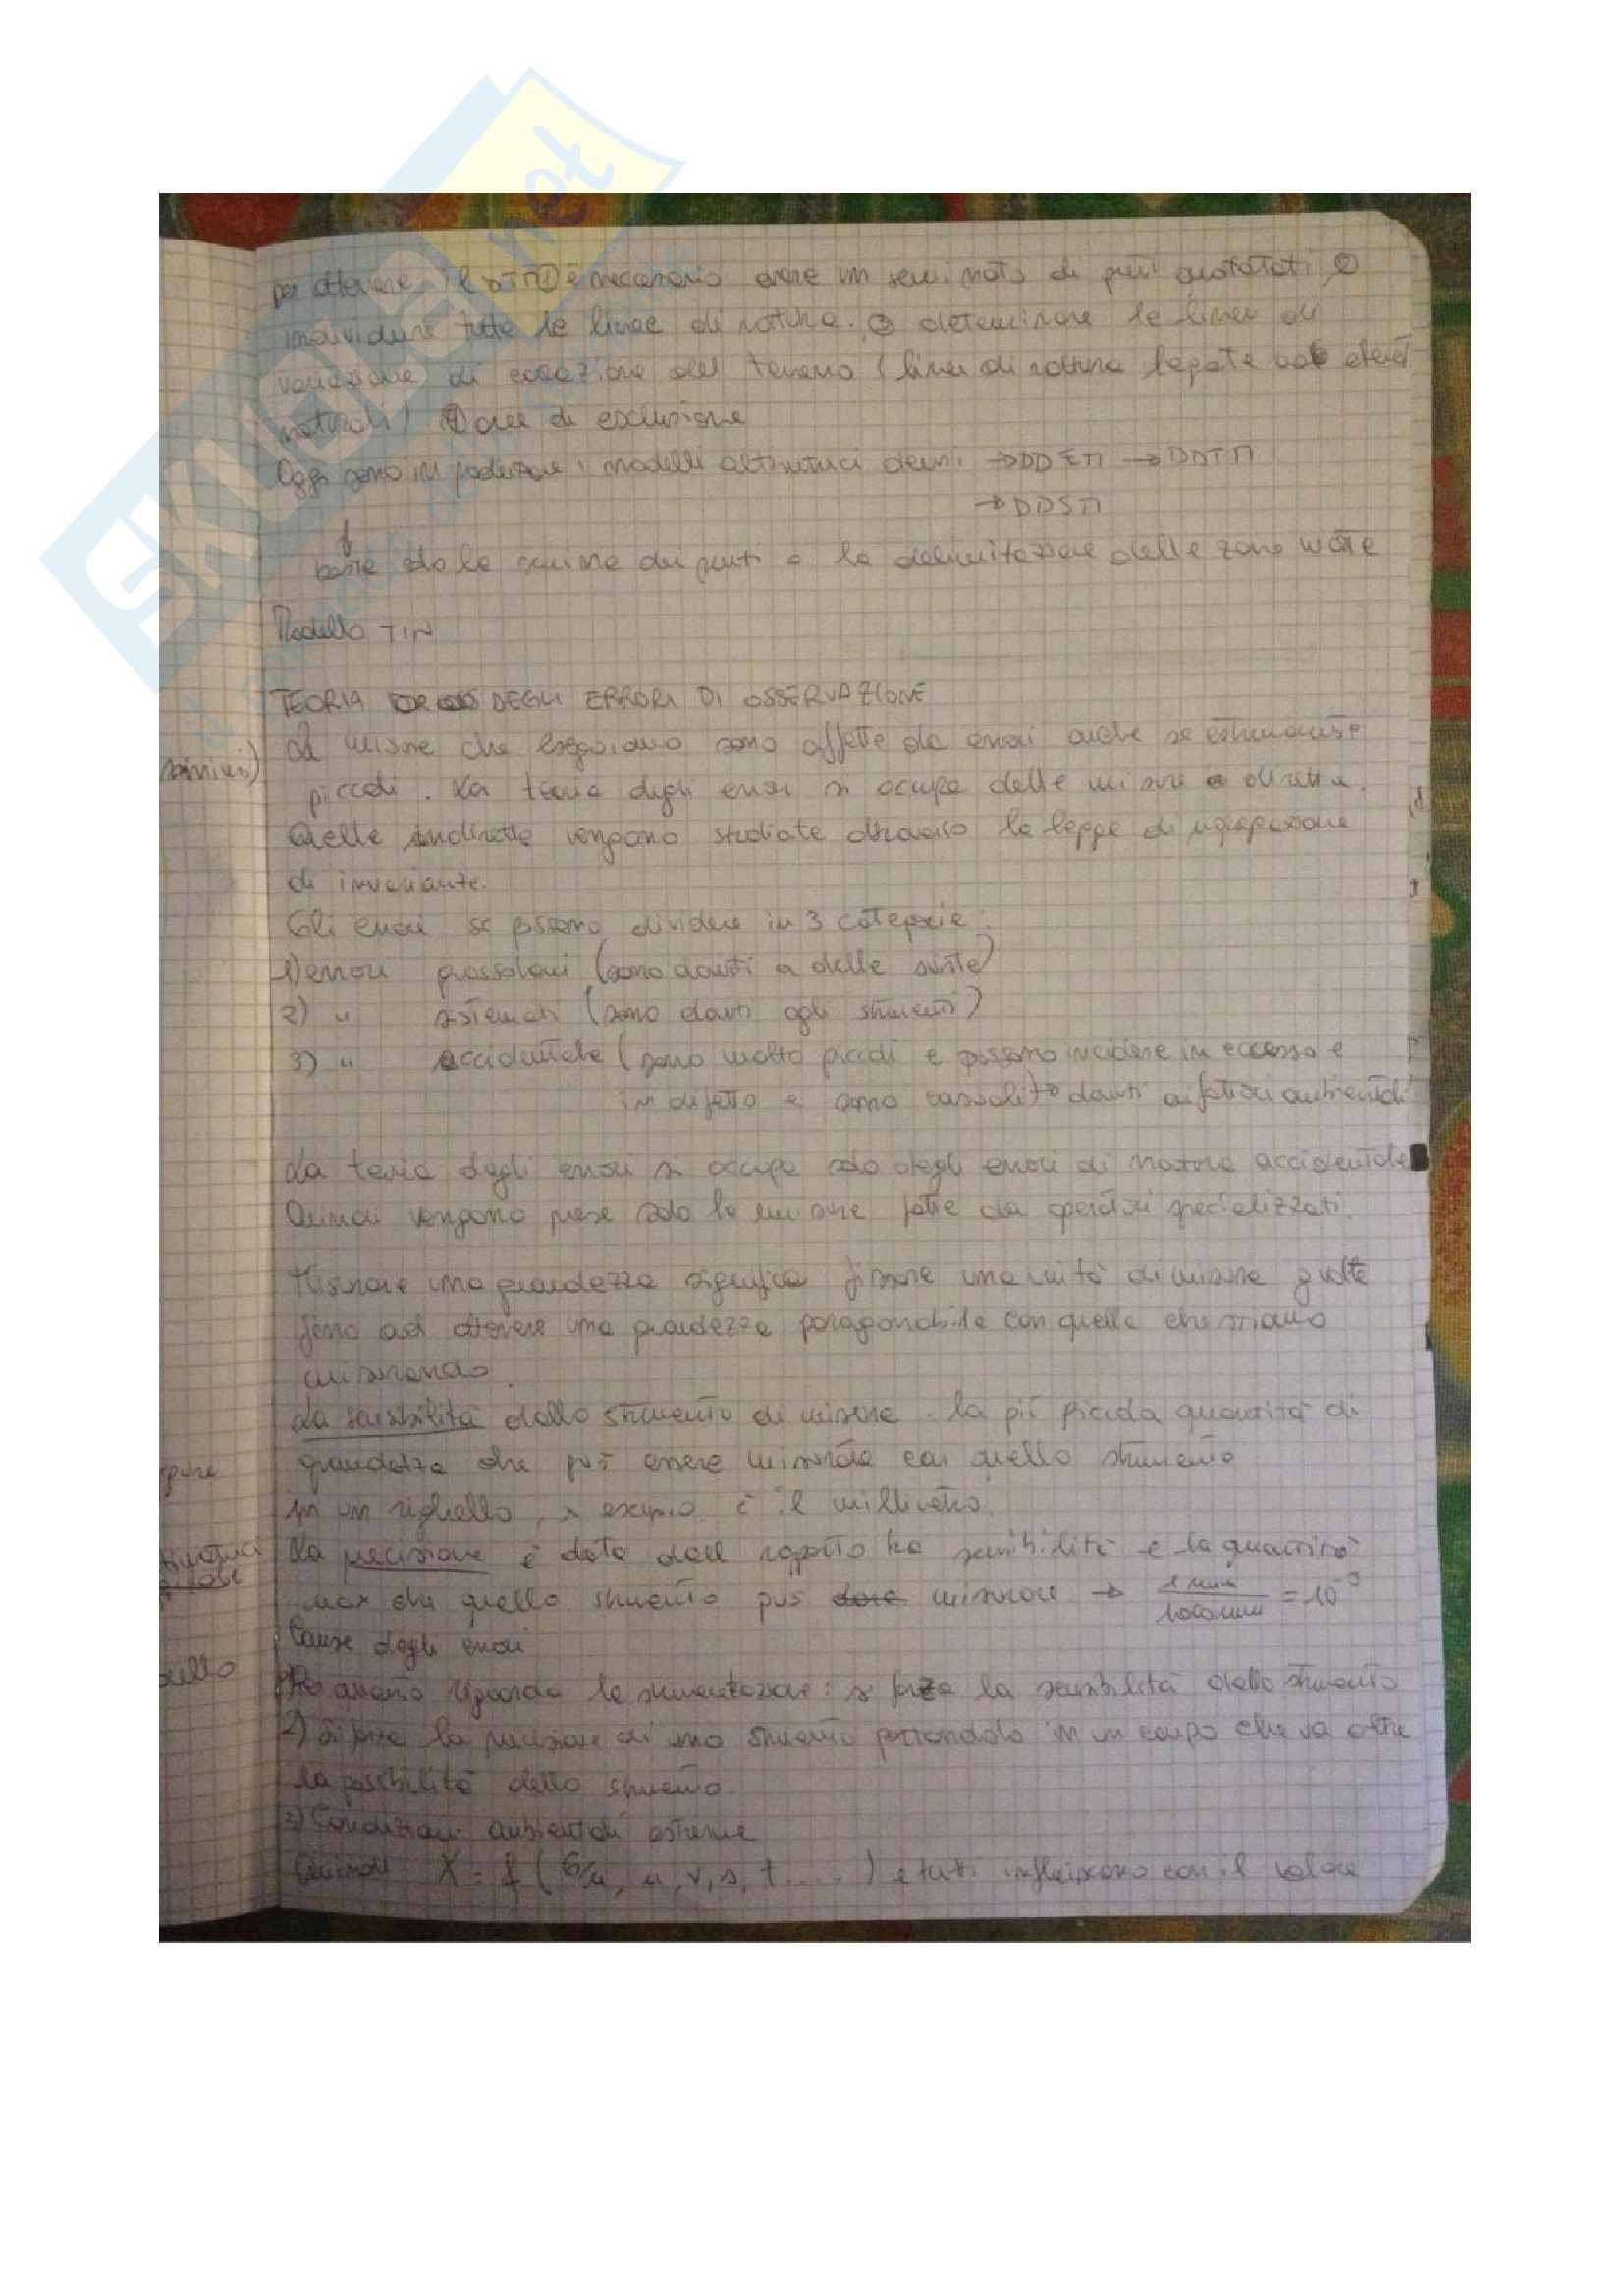 SKUOLA.net
per ottenere il DTM ① è necessario avere un seminato di punti quotati ②
individuare tutte le linee di rottura. ③ determinare le linee di
variazione di del terreno (linee di rottura legate
naturali) ④ aree di esclusione
Oggi sono in produzione i modelli altimetrici densi → DDEM → DDTM
→ DDSM
la delimitazione delle zone
Modello TIN
TEORIA DEGLI ERRORI DI OSSERVAZIONE
Le misure che eseguiamo sono affette da errori anche se estremamente
piccoli. La teoria degli errori si occupa delle misure dirette.
Quelle indirette vengono studiate attraverso la legge di
di
Gli errori si possono dividere in 3 categorie:
1) errori grossolani (sono dovuti a delle sviste)
2) " sistematici (sono dovuti agli strumenti)
3) " accidentale (sono molto piccoli e possono incidere in eccesso e
in difetto e sono dovuti ai fattori ambientali
La teoria degli errori si occupa solo degli errori di natura accidentale
Quindi vengono prese solo le misure fatte da operatori specializzati.
Misurare una grandezza significa fissare una unità di misura
fino ad ottenere una grandezza paragonabile con quella che stiamo
misurando.
La sensibilità dello strumento di misura. la più piccola quantità di
grandezza che può essere misurata con quello strumento
in un righello, a esempio è il millimetro.
La precisione è data dall rapporto tra sensibilità e la quantità
max che quello strumento può dare misurare → 1 mm / 1000 mm = 10⁻³
Cause degli errori
riguarda la strumentazione: si forza la sensibilità dello strumento
2) Si forza la precisione di uno strumento portandolo in un campo che va oltre
la possibilità dello strumento.
3) Condizioni ambientali estreme
Quindi X = f (G/u, u, v, s, t ....) e tutti influiscono con il valore